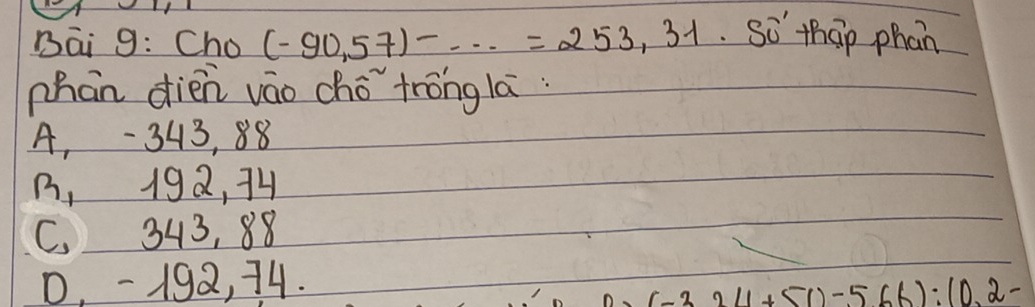 Bài 9: Cho (-90,57) - ... = 253,31. Số thập phân
phân điền vào chỗ trống là:
A, -343,88
B, 192,74
C, 343,88
D, -192,74.